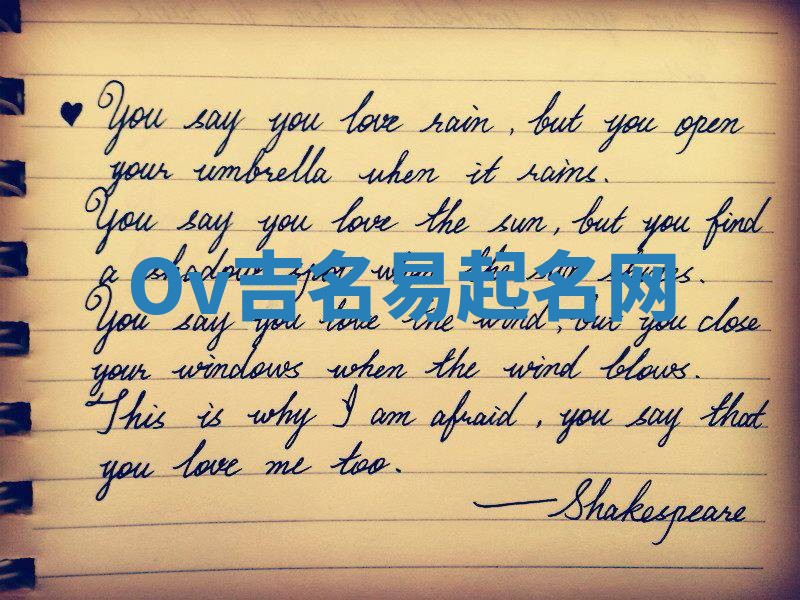 ♥ You say you love rain, but you open
your umbrella when it rains.
You say you love the sun, but you find
a shadow spot when the sun shines.
Ov吉名易起名网
You say you love the wind, but you close
your windows when the wind blows.
This is why I am afraid, you say that
you love me too.
— Shakespeare